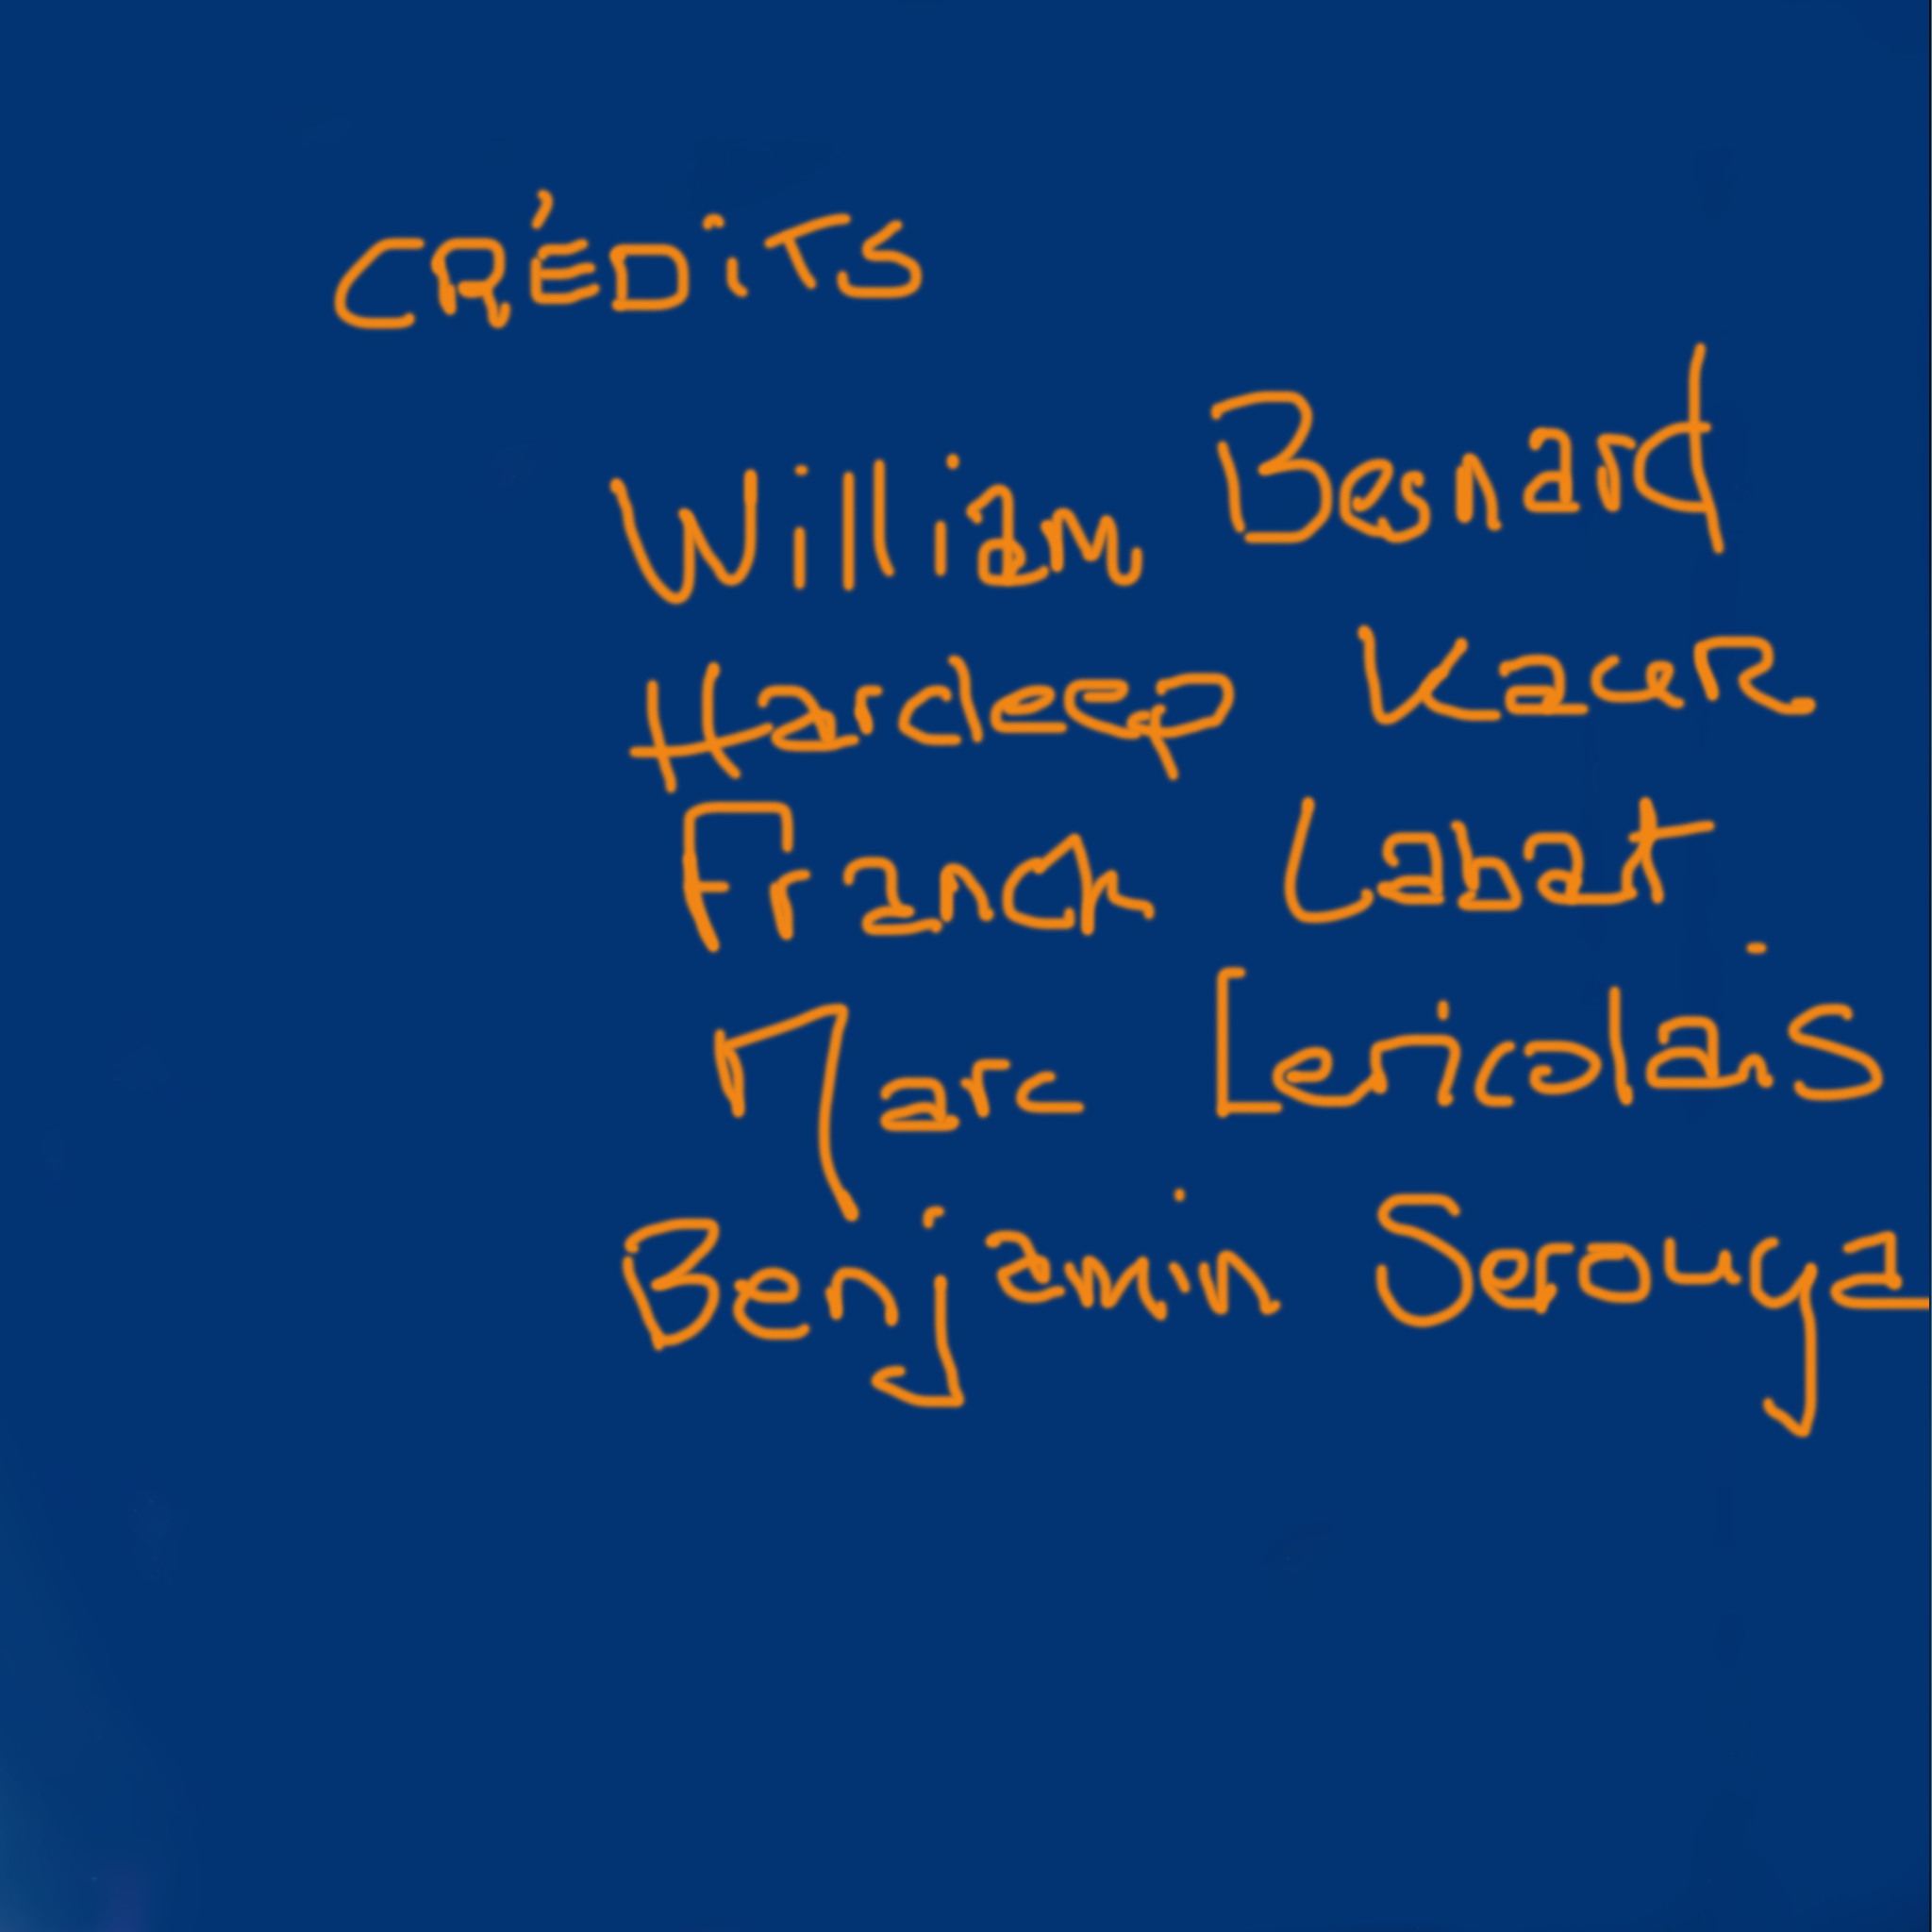 CRÉDiTS
William Besnard
Hardeep Kaur
Franck Labat
Marc Lericolais
Benjamin Serouga